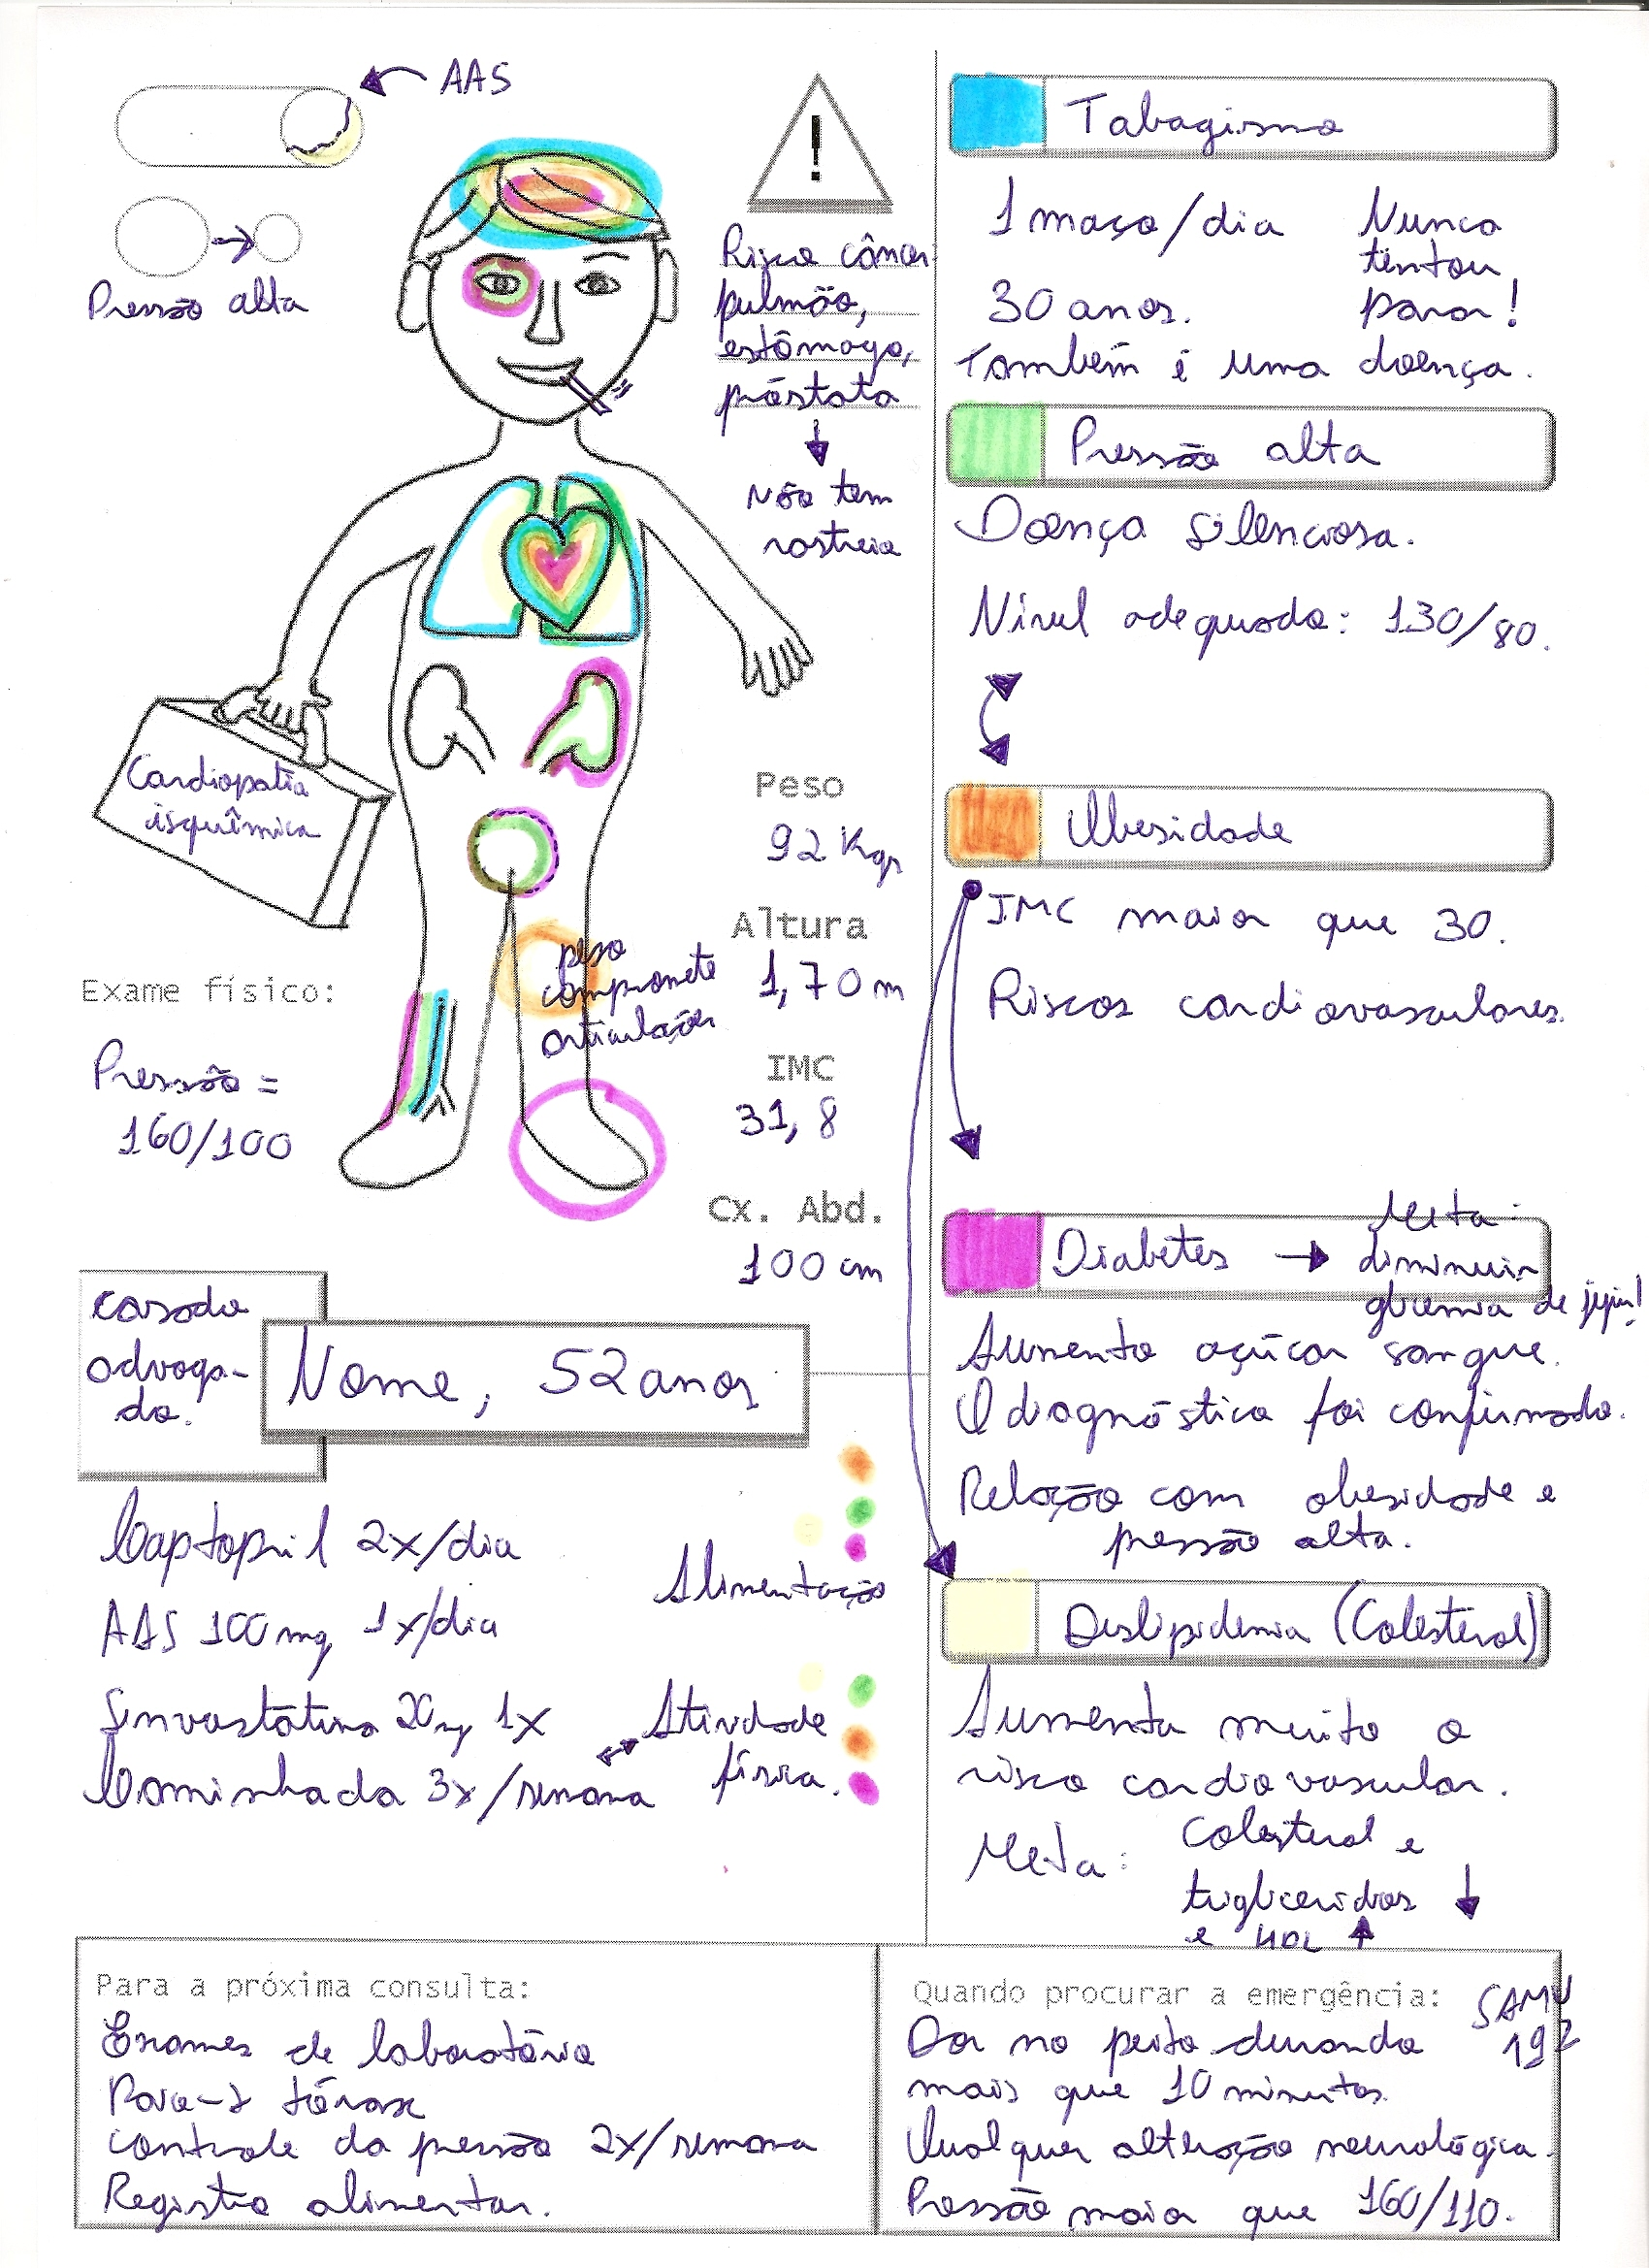 AAS
Pressão alta
!
Risco câncer
pulmão,
estômago,
próstata
Não tem
rastreio
Cardiopatia
isquêmica
Peso
92 Kgr
Altura
1,70 m
IMC
31,8
Cx. Abd.
100 cm
peso
compromete
articulações
Exame físico:
Pressão =
160/100
casado
advoga-
do.
Nome, 52 anos
Captopril 2x/dia
AAS 100mg 1x/dia
Sinvastatina 20mg 1x
Caminhada 3x/semana
Alimentação
Atividade
física.
Tabagismo
1 maço/dia
30 anos.
Nunca
tentou
parar!
Também é uma doença.
Pressão alta
Doença silenciosa.
Nível adequado: 130/80.
Obesidade
IMC maior que 30.
Riscos cardiovasculares.
Diabetes
Meta:
diminuir
glicemia de jejum!
Aumento açúcar sangue.
O diagnóstico foi confirmado.
Relação com obesidade e
pressão alta.
Dislipidemia (Colesterol)
Aumenta muito o
risco cardiovascular.
Meta: Colesterol e
triglicerídeos
e HDL
Para a próxima consulta:
Exames de laboratório
Raio-x tórax
controle da pressão 2x/semana
Registro alimentar.
Quando procurar a emergência:
SAMU
192
Dor no peito durando
mais que 10 minutos.
Qualquer alteração neurológica.
Pressão maior que 160/110.